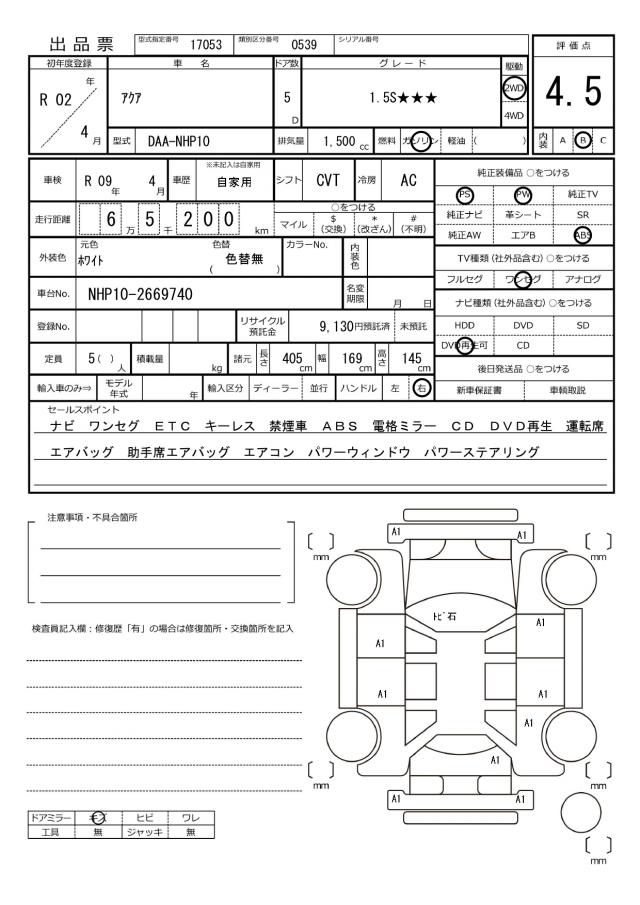 出品票 型式指定番号 17053 類別区分番号 0539 シリアル番号
評価点
初年度登録 車名 ドア数 グレード 駆動
R 02 年 4 月 アクア 5 D 1.5S★★★ 2WD 4WD
4.5
型式 DAA-NHP10 排気量 1,500 cc 燃料 ガソリン 軽油 ( )
内装 A B C
車検 R 09 年 4 月 車歴 ※未記入は自家用 自家用 シフト CVT 冷房 AC
純正装備品 ○をつける
PS PW 純正TV
純正ナビ 革シート SR
純正AW エアB ABS
走行距離 6 万 5 千 200 km
○をつける
マイル $ (交換) * (改ざん) # (不明)
外装色 元色 ホワイト 色替 ( 色替無 ) カラーNo. 内装色
TV種類 (社外品含む) ○をつける
フルセグ ワンセグ アナログ
車台No. NHP10-2669740 名変期限 月 日
ナビ種類 (社外品含む) ○をつける
HDD DVD SD
DVD再生可 CD
登録No. リサイクル預託金 9,130円預託済 未預託
定員 5 ( ) 人 積載量 kg 諸元 長さ 405 cm 幅 169 cm 高さ 145 cm
後日発送品 ○をつける
新車保証書 車輌取説
輸入車のみ⇒ モデル年式 年 輸入区分 ディーラー 並行 ハンドル 左 右
セールスポイント
ナビ ワンセグ ETC キーレス 禁煙車 ABS 電格ミラー CD DVD再生 運転席
エアバッグ 助手席エアバッグ エアコン パワーウィンドウ パワーステアリング
注意事項・不具合箇所
検査員記入欄：修復歴「有」の場合は修復箇所・交換箇所を記入
A1 A1
mm mm
トビ石
A1
A1
A1 A1
A1
A1
mm mm
A1 A1
mm
ドアミラー キズ ヒビ ワレ
工具 無 ジャッキ 無